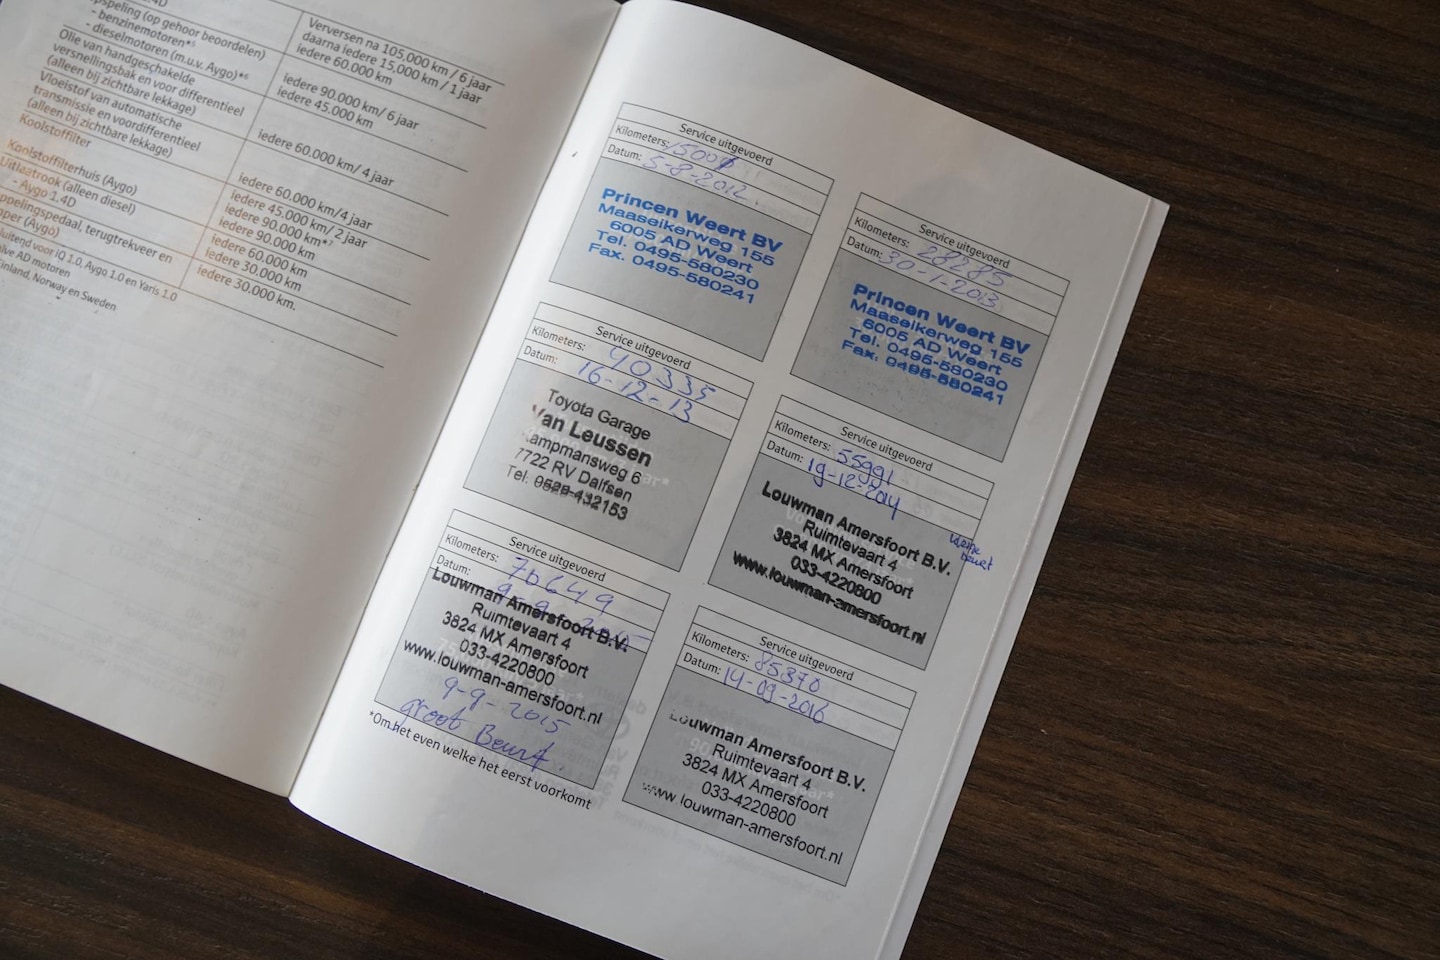 .4D
pspeling (op gehoor beoordelen)
- benzinemotoren*⁵
- dieselmotoren (m.u.v. Aygo)*⁶
Olie van handgeschakelde
versnellingsbak en voor differentieel
(alleen bij zichtbare lekkage)
Vloeistof van automatische
transmissie en voordifferentieel
(alleen bij zichtbare lekkage)
Koolstoffilter
Koolstoffilterhuis (Aygo)
Uitlaatrook (alleen diesel)
- Aygo 1.4D
ppelingspedaal, terugtrekveer en
pper (Aygo)
luitend voor iQ 1.0, Aygo 1.0 en Yaris 1.0
lve AD motoren
Finland, Norway en Sweden
Verversen na 105.000 km / 6 jaar
daarna iedere 15.000 km / 1 jaar
iedere 60.000 km
iedere 90.000 km/ 6 jaar
iedere 45.000 km
iedere 60.000 km/ 4 jaar
iedere 60.000 km/4 jaar
iedere 45.000 km/ 2 jaar
iedere 90.000 km*⁷
iedere 90.000 km
iedere 60.000 km
iedere 30.000 km
iedere 30.000 km.
Service uitgevoerd
Kilometers: 15000
Datum: 5-8-2012
Princen Weert BV
Maaseikerweg 155
6005 AD Weert
Tel. 0495-580230
Fax. 0495-580241
Service uitgevoerd
Kilometers: 28285
Datum: 30-1-2013
Princen Weert BV
Maaseikerweg 155
6005 AD Weert
Tel. 0495-580230
Fax. 0495-580241
Service uitgevoerd
Kilometers: 40335
Datum: 16-12-13
Toyota Garage
Van Leussen
Kampmansweg 6
7722 RV Dalfsen
Tel. 0529-432153
Service uitgevoerd
Kilometers: 55991
Datum: 19-12-2014
Louwman Amersfoort B.V.
Ruimtevaart 4
3824 MX Amersfoort
033-4220800
www.louwman-amersfoort.nl
kleine
beurt
Service uitgevoerd
Kilometers: 70649
Datum: 9-9-2015
Louwman Amersfoort B.V.
Ruimtevaart 4
3824 MX Amersfoort
033-4220800
www.louwman-amersfoort.nl
9-9-2015
groot Beurt
Service uitgevoerd
Kilometers: 85370
Datum: 14-09-2016
Louwman Amersfoort B.V.
Ruimtevaart 4
3824 MX Amersfoort
033-4220800
www.louwman-amersfoort.nl
*Om het even welke het eerst voorkomt